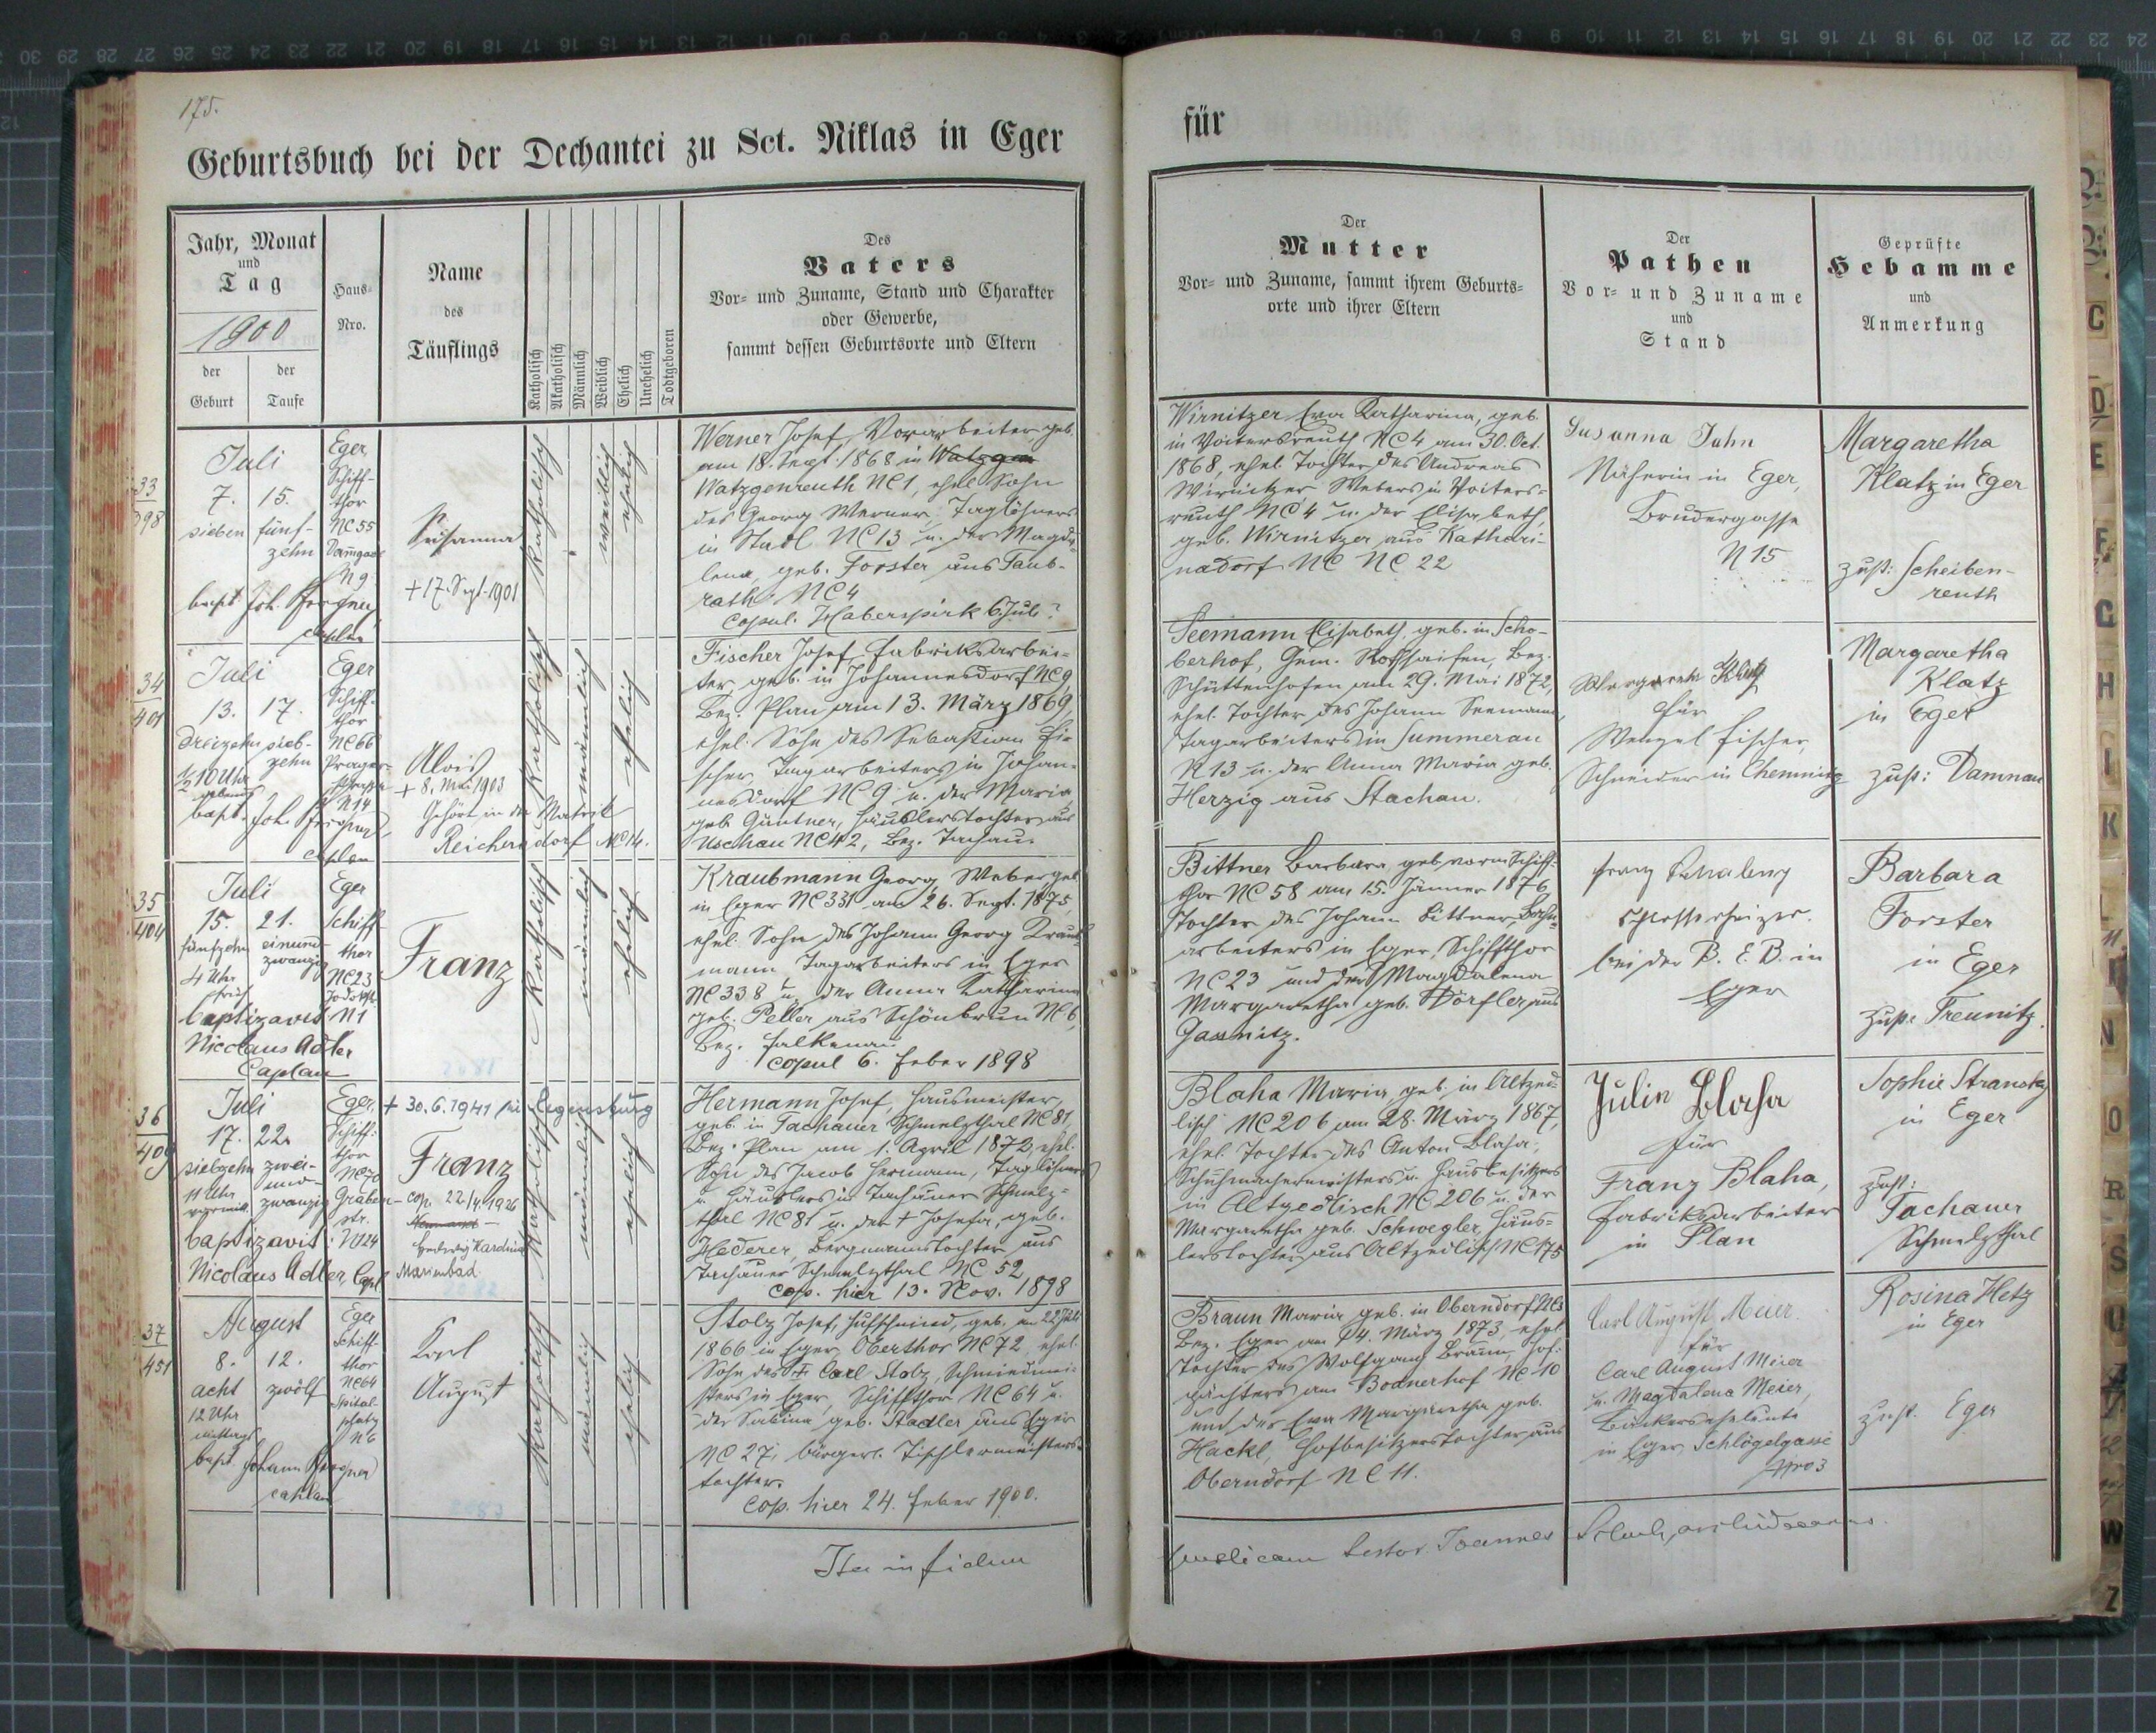 175.
Geburtsbuch bei der Dechantei zu Sct. Niklas in Eger
Jahr, Monat
und
Tag
1900
der Geburt
der Taufe
Haus-
Nro.
Name
des
Täuflings
Katholisch
Akatholisch
Männlich
Weiblich
Ehelich
Unehelich
Todtgeboren
Des
Vaters
Vor- und Zuname, Stand und Charakter
oder Gewerbe,
sammt dessen Geburtsorte und Eltern
für
Der
Mutter
Vor- und Zuname, sammt ihrem Geburts-
orte und ihrer Eltern
Der
Pathen
Vor- und Zuname
und
Stand
Geprüfte
Hebamme
und
Anmerkung
33
398
Juli
7. 15.
sieben fünf-
zehn
bapt. Joh.
Caplan
Eger
Schiff-
thor
NC 55
N 9
Susanna
+ 17. Sept. 1901
katholisch
weiblich
ehelich
Werner Josef, Vorarbeiter, geb.
am 18. Sept. 1868 in Watzgen
Watzgenreuth NC 1, ehel. Sohn
des Georg Werner, Taglöhners
in Stadl NC 13 u. der Magda-
lena, geb. Forster aus Taub-
rath NC 4
copul. Haberspirk 6. Juli
Wirnitzer Eva Katharina, geb.
in Voitersreuth NC 4 am 30. Oct.
1868, ehel. Tochter des Andreas
Wirnitzer Webers in Voiters-
reuth NC 4 u. der Elisabeth,
geb. Wirnitzer aus Kathari-
nadorf NC NC 22
Susanna Jahn
Näherin in Eger,
Brudergasse
N 15
Margaretha
Klatz in Eger
zust: Scheiben-
reuth
34
401
Juli
13. 17.
dreizehn sieb-
zehn
1/2 10 Uhr
bapt. Joh.
Caplan
Eger
Schiff-
thor
NC 66
Prager-
N 14
Alois
+ 8. Mai 1903
Gehört in die Matrik
Reichersdorf NC 14.
katholisch
männlich
ehelich
Fischer Josef, Fabriksarbei-
ter, geb. in Johannesdorf NC 9,
Bez. Plan am 13. März 1869,
ehel. Sohn des Sebastian Fi-
scher, Tagarbeiters in Johan-
nesdorf NC 9 u. der Maria
geb. Güntner, Häuslerstochter aus
Uschau NC 42, Bez. Tachau.
Seemann Elisabeth, geb. in Scho-
berhof, Gem. Bez.
Schüttenhofen am 29. Mai 1872,
ehel. Tochter des Johann Seemann,
Tagarbeiters in Summerau
N 13 u. der Anna Maria geb.
Herzig aus Stachau.
Margareta Klatz
für
Wenzel Fischer,
Schneider in Chemnitz
Margaretha
Klatz
in Eger
zust: Damnau
35
404
Juli
15. 21.
fünfzehn einund-
zwanzig
4 Uhr
früh
baptizavit
Nicolaus Adler
Caplan
Eger
Schiff-
thor
NC 23
N 1
Franz
katholisch
männlich
ehelich
Kraubmann Georg, Weber, geb.
in Eger NC 331 am 26. Sept. 1875,
ehel. Sohn des Johann Georg Kraub-
mann, Tagarbeiters in Eger
NC 338 u. der Anna Katharina
geb. Peller aus Schönbrun NC 6,
Bez. Falkenau
copul 6. Feber 1898
Bittner Barbara, geb. vorm Schiff-
thor NC 58 am 15. Jänner 1876,
Tochter des Johann Bittner Bahn-
arbeiters in Eger, Schiffthor
NC 23 und der Magdalena
Margaretha geb. Dörfler, aus
Gassnitz.
Franz
bei der B. E. B. in
Eger
Barbara
Forster
in Eger
zust: Treunitz.
36
409
Juli
17. 22.
siebzehn zwei-
und-
zwanzig
11 Uhr
vormitt.
baptizavit:
Nicolaus Adler, Capl.
Eger,
Schiff-
thor
NC 70
Graben-
str.
N 24
+ 30.6.1941 in Regensburg
Franz
cop. 22./4.1926
Marienbad
katholisch
männlich
ehelich
Hermann Josef, Hausmeister,
geb. in Tachauer Schmelzthal NC 81,
Bez. Plan am 1. April 1873, ehel.
Sohn des Jacob Hermann, Taglöhners
u. Häuslers in Tachauer Schmelz-
thal NC 81 u. der + Josefa, geb.
Hederer, Bergmannstochter aus
Tachauer Schmelzthal NC 52
Cop. hier 13. Nov. 1898
Blaha Maria, geb. in Altzed-
lisch NC 206 am 28. März 1867,
ehel. Tochter des Anton Blaha,
Schuhmachermeisters u. Hausbesitzers
in Altzedlisch NC 206 u. der
Margaretha geb. Schwegler, Häus-
lerstochter aus Altzedlisch NC 175
Julie Blaha
für
Franz Blaha,
Fabriksarbeiter
in Plan
Sophie Stransky
in Eger
zust:
Tachauer
Schmelzthal
37
451
August
8. 12.
acht zwölf
12 Uhr
mittags
bapt. Johann
caplan
Eger
Schiff-
thor
NC 64
Spital-
platz
N 6
Karl
August
katholisch
männlich
ehelich
Stolz Josef, Hufschmied, geb. am 22. Juli
1866 in Eger, Oberthor NC 72, ehel.
Sohn des + Carl Stolz, Schmiedmei-
sters in Eger, Schiffthor NC 64 u.
der Sabina geb. Stadler aus Eger
NC 27, bürgerl. Tischlermeisters-
tochter.
Cop. hier 24. Feber 1900.
Braun Maria geb. in Oberndorf
Bez. Eger am 14. März 1873, ehel.
Tochter des Wolfgang Braun, Hof-
pächters am Bodnerhof NC 10
und der Eva Margaretha geb.
Hackl, Hofbesitzerstochter aus
Oberndorf NC 11.
Carl August Meier
für
Carl August Meier
u. Magdalena Meier,
Bäckerseheleute
in Eger, Schlögelgasse
Nro 3
Rosina Hetz
in Eger
zust. Eger
Ita in fidem
testor Joannes
C
D
E
F
G
H
I
K
N
O
R
S
W
Z